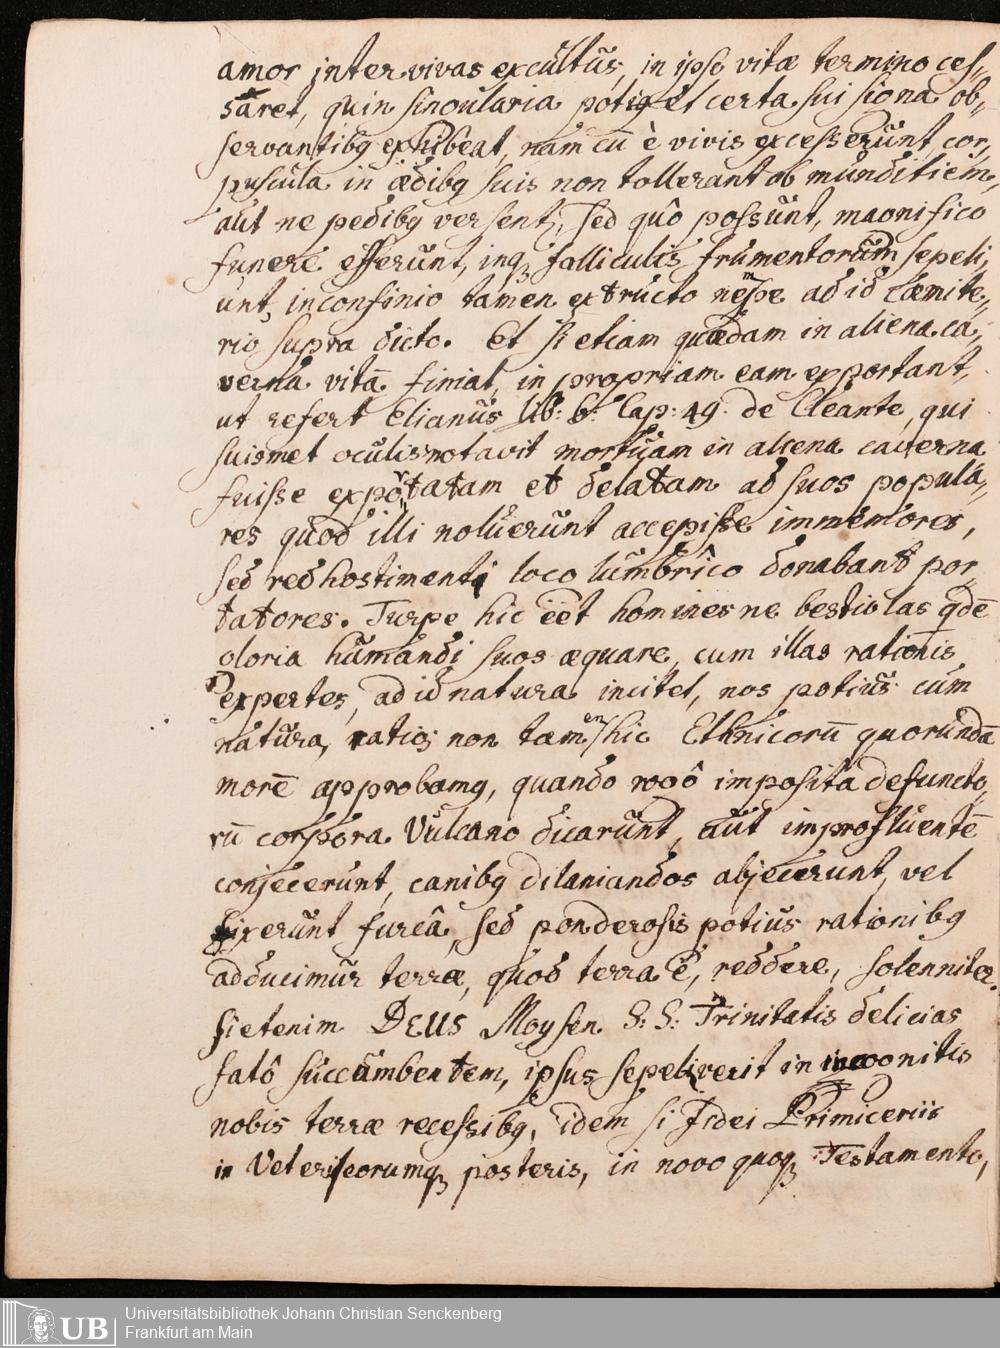 amor inter vivas excultus, in ipso vitæ termino ces-
saret, quin singularia potiq et certa sui signa ob-
servantibq exhibeat, nam cū è vivis excesserunt, cor-
puscula in ædibq suis non tollerant ob munditiem,
aut ne pedibq versent, sed quô possunt, magnifico
funere efferunt, inq folliculis frumentorum sepeli-
unt, in confinio tamen extructo nempe ad id Cœmite-
rio supra dicto. Et si etiam quædam in aliena ca-
verna vitā finiat, in propriam eam exportant,
ut refert Elianus lib: 6: Cap: 49. de Cleante, qui
suismet oculis notavit mortuam in aliena caverna
fuisse exportatam et delatam ad suos popula-
res quod illi noluerunt accepisse immemores,
sed redhostimenti loco lumbrîco donabant por-
tatores. Turpe hic ēēt homines ne bestiolas qdē
gloria humandi suos æquare, cum illas rationis
expertes, ad id natura incitet, nos potius cum
natura, ratio; non tamen hic Ethnicorū quorundā
morē approbamq, quando rogô imposita defuncto-
rū corpora Vulcano dicarunt, aut in profluentē
conjecerunt, canibq dilaniandos abjecerunt, vel
fixerunt furcâ, sed ponderosis potius rationibq
adducimur terræ, quod terra ē, reddere, solenniter.
si etenim DEUS Moysen S: S: Trinitatis delicias
fatô succumbentem, ipsus sepeliverit in incognitis
nobis terræ recessibq, idem si fidei Primicerii
in Veteri eorumq posteris, in novo quoq Testamento,
Universitätsbibliothek Johann Christian Senckenberg
Frankfurt am Main
UB